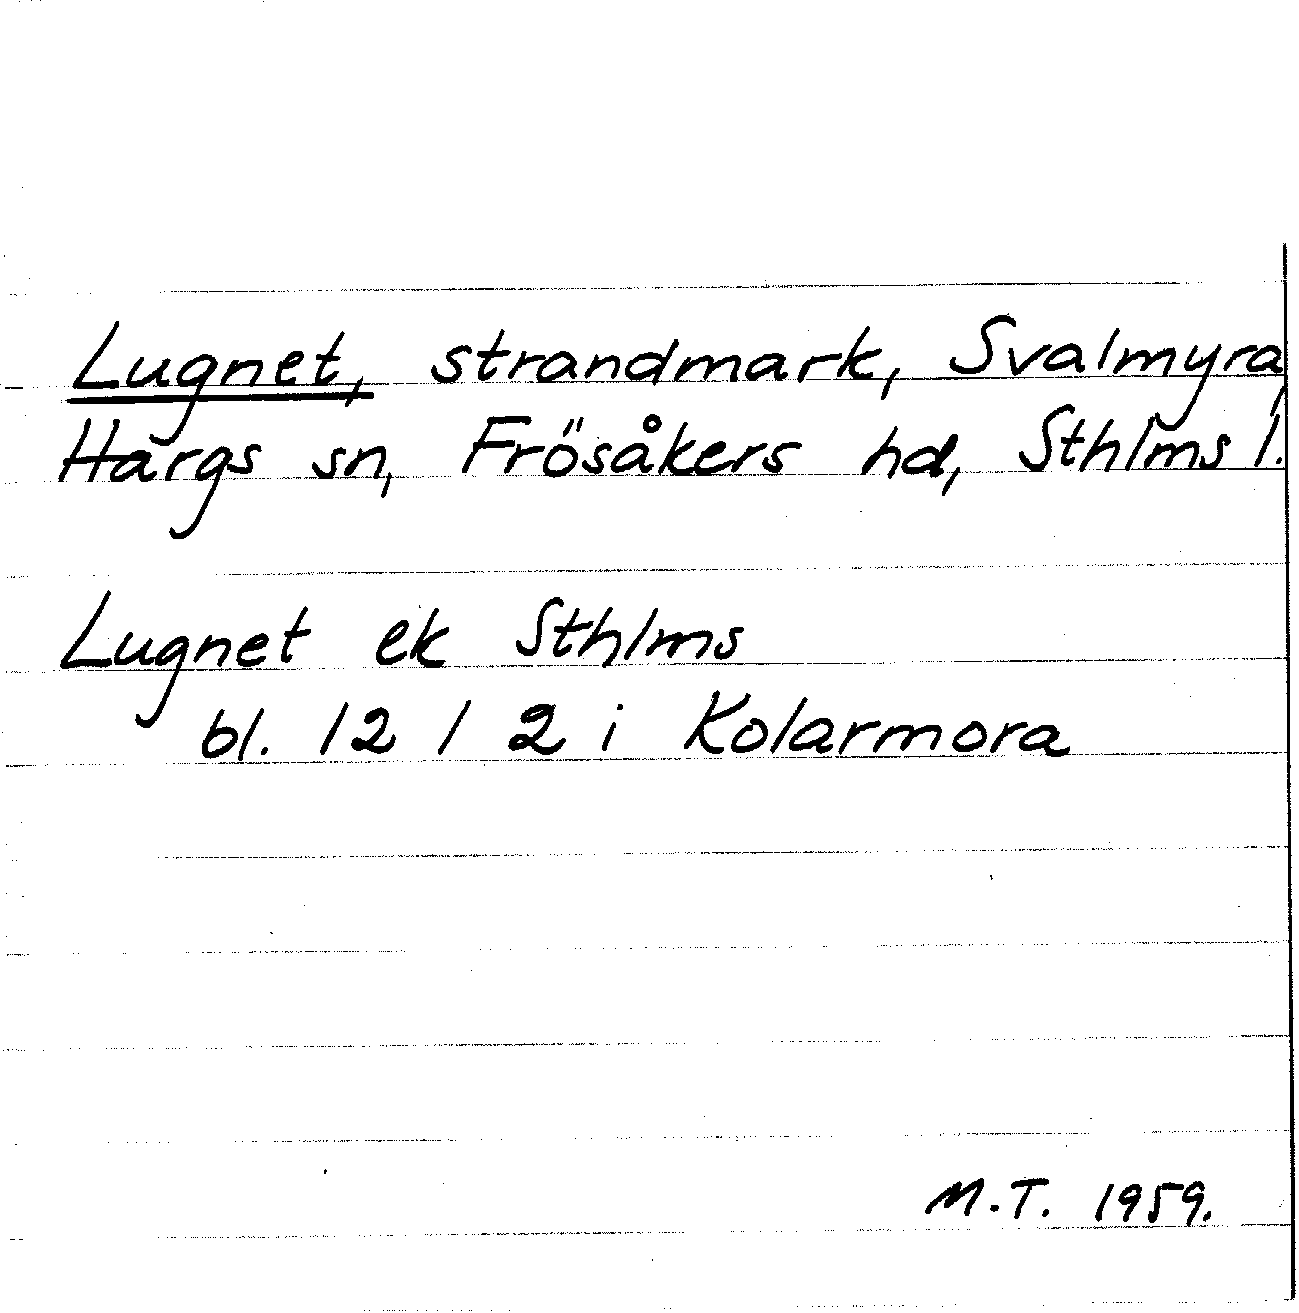 Lugnet, strandmark, Svalmyra,
Hargs sn, Frösåkers hd, Sthlms l.
Lugnet ek Sthlms
bl. 12 / 2 i Kolarmora
M.T. 1959.